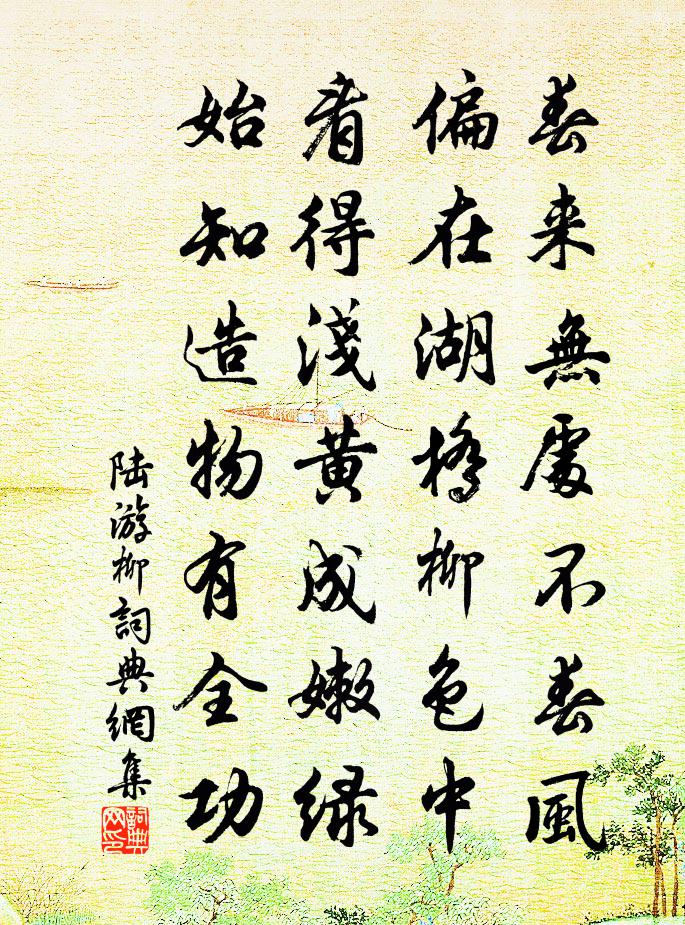 春来無處不春風
偏在湖橋柳色中
看得淺黄成嫩绿
始知造物有全功
陆游柳詞典網集
詞典网印